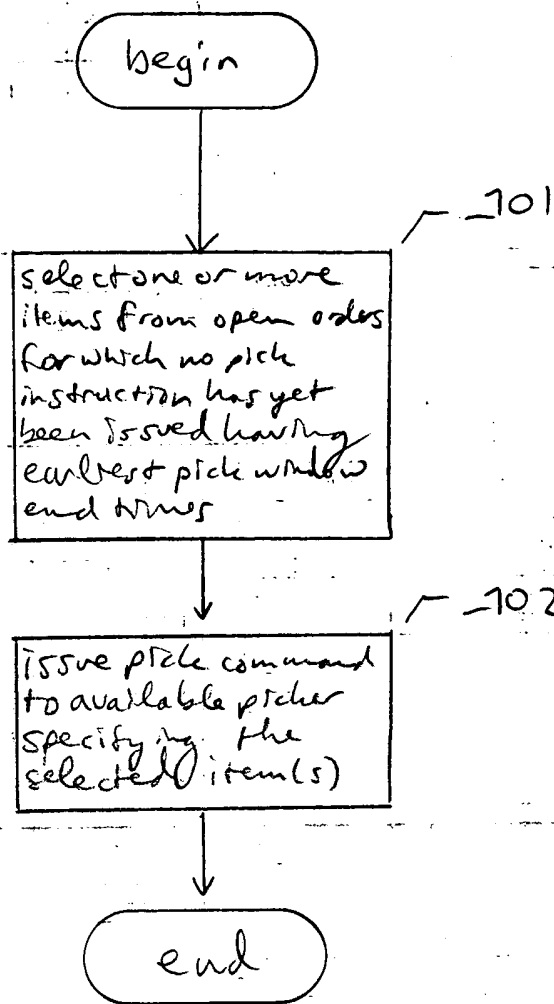 begin
101
select one or more
items from open orders
for which no pick
instruction has yet
been issued having
earliest pick window
end times
102
issue pick command
to available picker
specifying the
selected item(s)
end